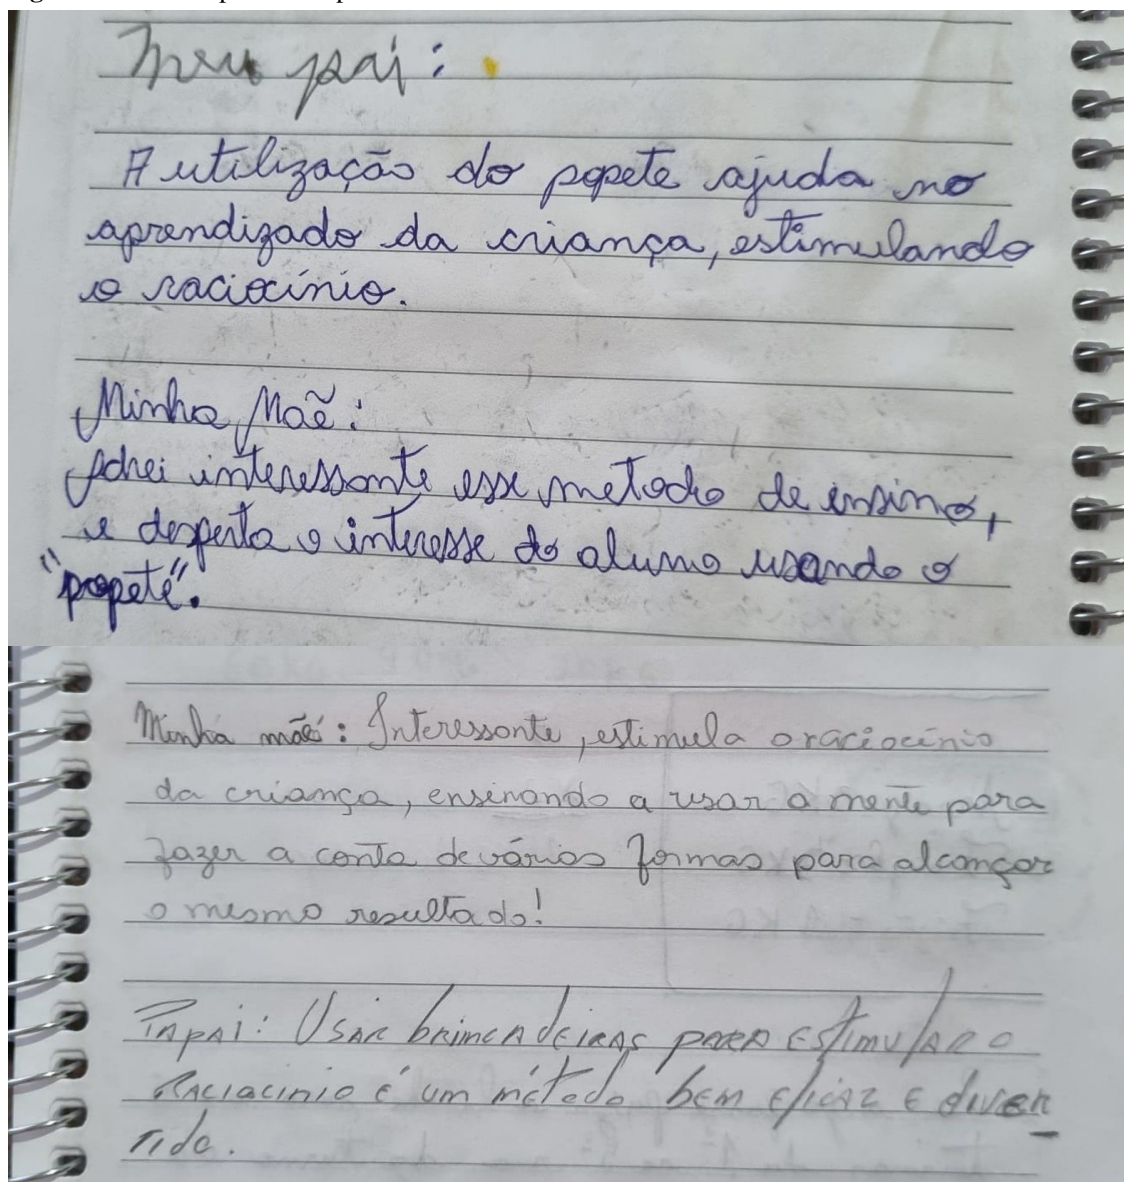 Meu pai:
A utilização do popete ajuda no
aprendizado da criança, estimulando
o raciocínio.
Minha Maẽ:
Achei interessante esse metodo de ensino,
e desperta o interesse do aluno usando o
"popete".
Minha mãe: Interessante, estimula o raciocínio
da criança, ensinando a usar a mente para
fazer a conta de vários formas para alcançar
o mesmo resultado!
PAPAI: USAR brincADEIRAS PARA EStimulAR O
RACIACINIO é um método bem eficAZ E diver
tido.